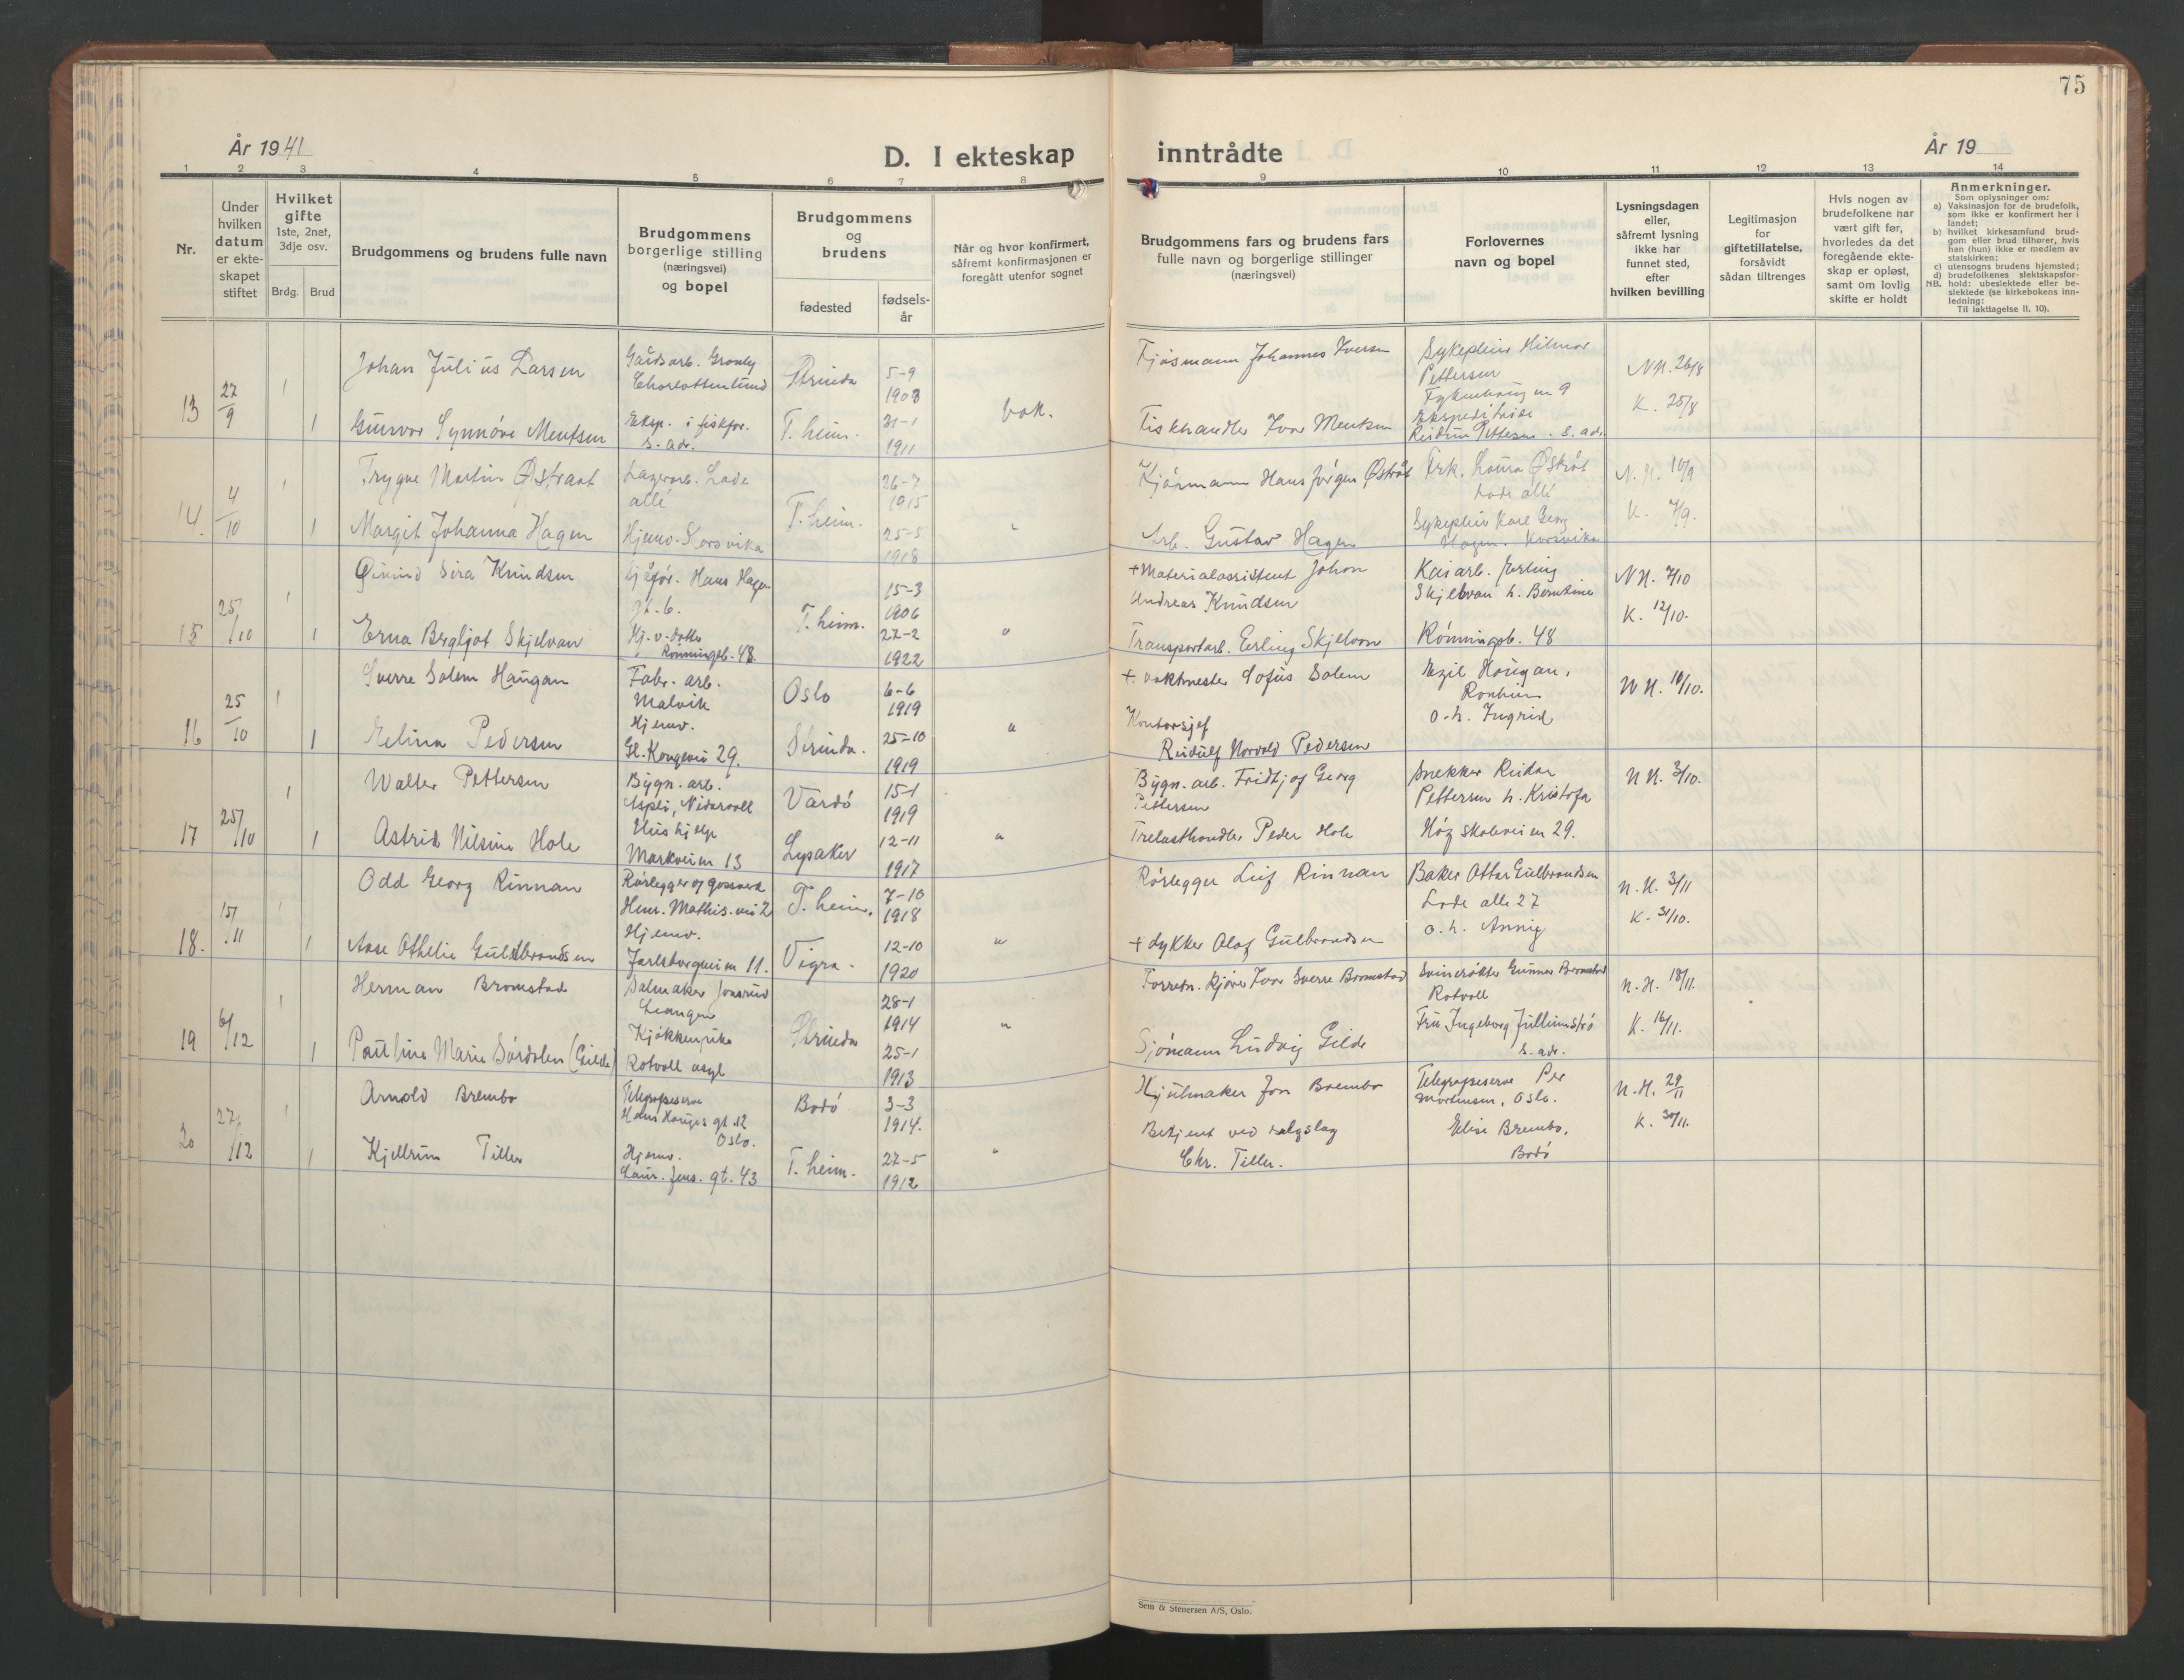 75
År 1941
D. I ekteskap inntrådte
År 19
1 2 3 4 5 6 7 8 9 10 11 12 13 14
Nr.
Under hvilken datum er ekteskapet stiftet
Hvilket gifte 1ste, 2net, 3dje osv.
Brdg.
Brud
Brudgommens og brudens fulle navn
Brudgommens borgerlige stilling (næringsvei) og bopel
Brudgommens og brudens
fødested
fødsels-år
Når og hvor konfirmert, såfremt konfirmasjonen er foregått utenfor sognet
Brudgommens fars og brudens fars fulle navn og borgerlige stillinger (næringsvei)
Forlovernes navn og bopel
Lysningsdagen eller, såfremt lysning ikke har funnet sted, efter hvilken bevilling
Legitimasjon for giftetillatelse, forsåvidt sådan tiltrenges
Hvis nogen av brudefolkene har vært gift før, hvorledes da det foregående ekteskap er opløst, samt om lovlig skifte er holdt
Anmerkninger.
Som oplysninger om:
a) Vaksinasjon for de brudefolk, som ikke er konfirmert her i landet;
b) hvilket kirkesamfund brudgom eller brud tilhører, hvis han (hun) ikke er medlem av statskirken;
c) utensogns brudens hjemsted;
d) brudefolkenes slektskapsforhold: ubeslektede eller beslektede (se kirkebokens innledning:
NB. Til iakttagelse II. 10).
13 27/9 1 Johan Julius Larsen Gårdsarb. Charlottenlund Strinda 5-9 1903 Fjøsmann Johannes Iversen Sykepleier Hilmar Pettersen NN. 26/8
1 Gunvor Synnøve Mentsen Eksp. i fiskfor. s. adr. T.heim. 31-1 1911 vak. Fiskhandler Ivar Mentsen Ekspeditrise Reidun Pettersen. s. adr. K. 25/8
14. 4/10 1 Trygve Martin Østraat Lagerarb. Lade allé T.heim. 26-7 1915 Kjørmann Hans Jørgen Østråt Frk. Laura Østråt Lade allé N.N. 10/9
1 Margit Johanna Hagen Hjemv. Korsvika 25-5 1918 " Arb. Gustav Hagen Sykepleier Karl Georg Hagen. Korsvika K. 7/9.
15 25/10 1 Øivind Sira Knudsen Sjåfør. Hans Hagen gt. 6. T.heim. 15-3 1906 + Materialassistent Johan Andreas Knudsen Kaiarb. Erling Skjelvan h. Berntine NN. 7/10
1 Erna Bergljot Skjelvan Hj.v. datter Rønningsb. 48. 27-2 1922 " Transportarb. Erling Skjelvan Rønningsb. 48 K. 12/10.
16 25/10 1 Sverre Solem Haugan Fabr. arb. Malvik Oslo 6-6 1919 + vaktmester Sofus Solem Egil Haugan, Ranheim NN. 10/10.
1 Elina Pedersen Hjemv. Gl. Kongevei 29. Strinda. 25-10 1919 " Kontorsjef Reidulf Norvald Pedersen o.h. Ingrid
17 25/10 1 Walter Pettersen Bygn. arb. Nidarvoll Vardø 15-1 1919 Bygn. arb. Fridtjof Georg Pettersen Snekker Reidar Pettersen h. Kristofa NN. 3/10.
1 Astrid Nilsine Hole Hushjelp Markveien 13 Lysaker 12-11 1917 " Trelasthandler Peder Hole Høgskoleveien 29.
18. 15/11 1 Odd Georg Rinnan Rørlegger og gassverk Henr. Mathis. vei 2 T.heim. 7-10 1918 Rørlegger Leif Rinnan Baker Ottar Gulbrandsen Lade alle 27 N.N. 3/11
1 Aase Othelie Guldbrandsen Hjemv. Jarlsborgveien 11. Vigra. 12-10 1920 " + dykker Olaf Gulbrandsen o.h. Annie K. 30/10.
19 6/12 1 Herman Bromstad Salmaker Leangen Strinda 28-1 1914 Forretn. kjører Ivar Sverre Bromstad Svinerøkter Gunnar Bromstad Rotvoll N.N. 18/11.
1 Pauline Marie Sørdalen (Gilde) Kjøkkenpike Rotvoll asyl 25-1 1913 " Sjømann Ludvig Gilde Fru Ingeborg Jullumstrø s. adr. K. 16/11.
20 27/12 1 Arnold Brembo Telegrafreserve Hans Hauges gt. 12 Oslo. Bodø 3-3 1914. Hjulmaker Jon Brembo Telegrafreserve Per Mortensen, Oslo. N.N. 29/11
1 Kjellrun Tiller Hjemv. Laur. Jens. gt. 43 T.heim. 27-5 1912 " Betjent ved salgslag Chr. Tiller. Elise Brembo, Bodø K. 30/11.
Sem & Stenersen A/S, Oslo.